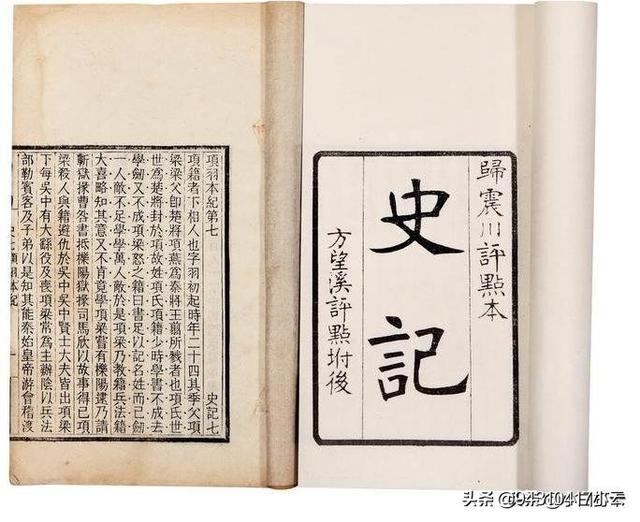 歸震川評點本
史記
方望溪評點坿後
項羽本紀第七
史記七
項籍者下相人也字羽初起時年二十四其季父項
梁梁父卽楚將項燕爲秦將王翦所戮者也項氏世
世爲楚將封於項故姓項氏項籍少時學書不成去
學劒又不成項梁怒之籍曰書足以記名姓而已劒
一人敵不足學學萬人敵於是項梁乃教籍兵法籍
大喜略知其意又不肯竟學項梁嘗有櫟陽逮乃請
蘄獄掾曹咎書抵櫟陽獄掾司馬欣以故事得已項
梁殺人與籍避仇於吳中吳中賢士大夫皆出項梁
下每吳中有大繇役及喪項梁常爲主辦陰以兵法
部勒賓客及子弟以是知其能秦始皇帝游會稽渡
史記七項羽本紀
头条@